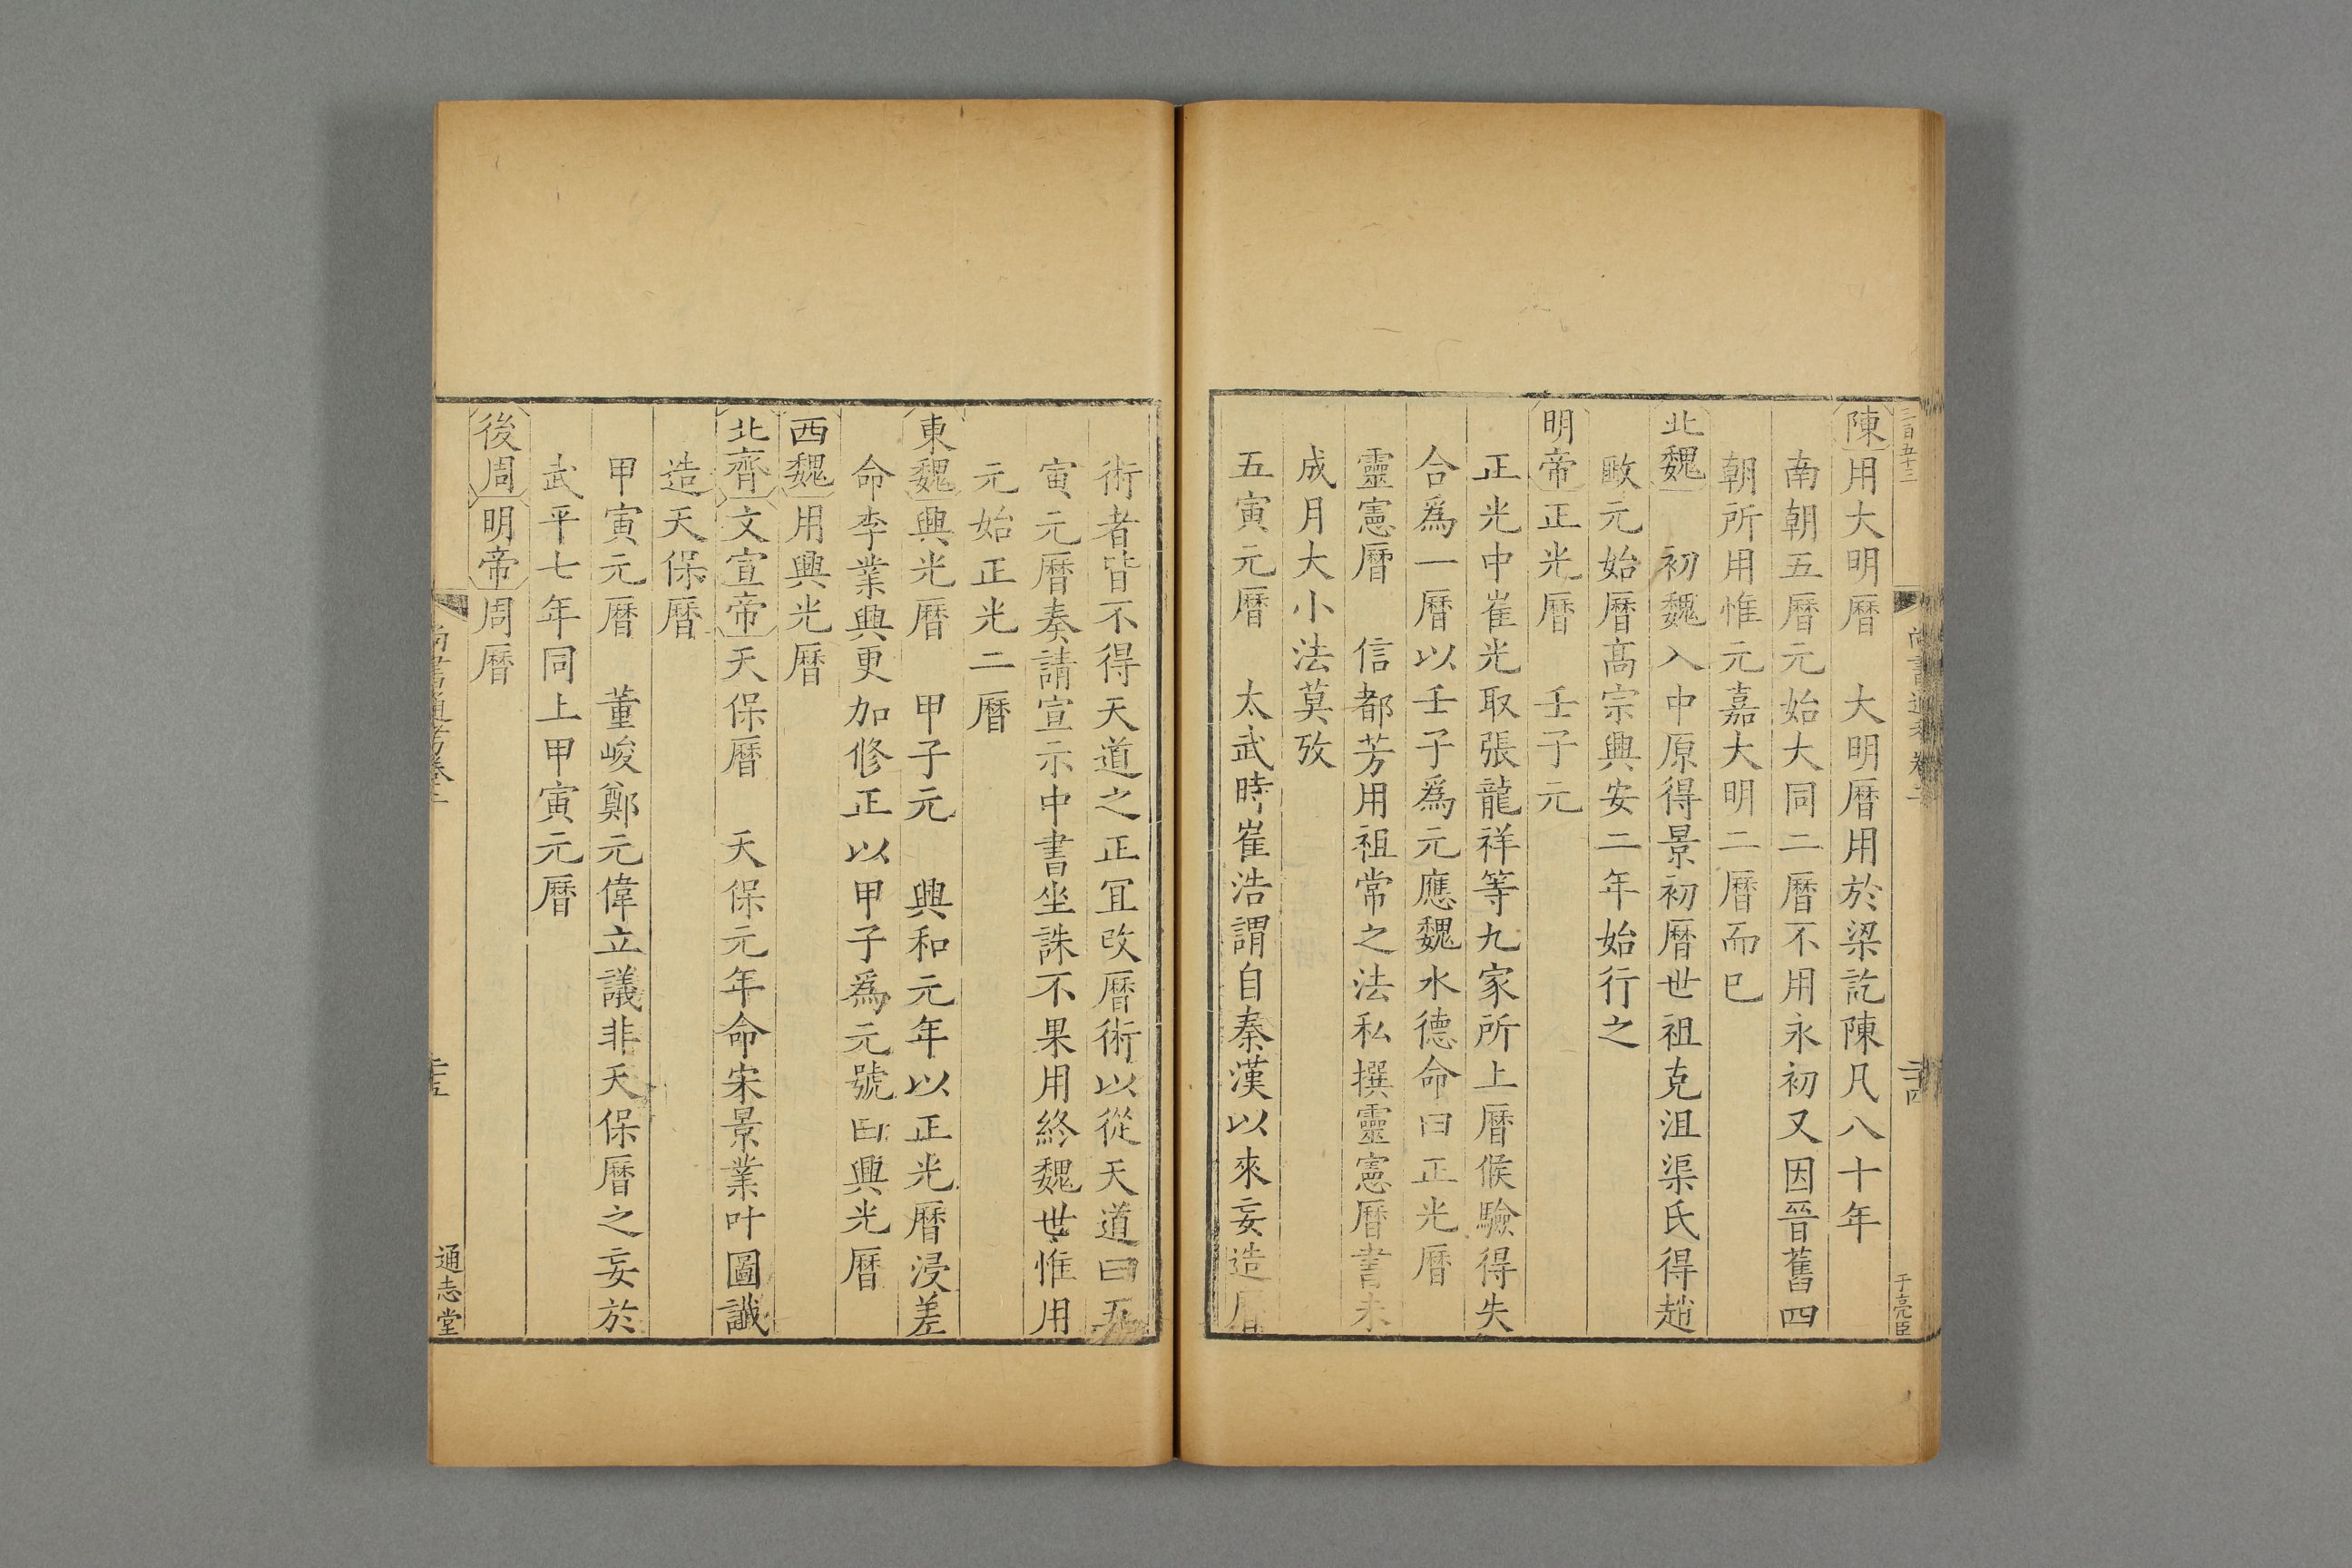 三百五十三
尚書通考卷二
二十四
于亮臣
陳用大明曆　大明曆用於梁訖陳凡八十年
南朝五曆元始大同二曆不用永初又因晉舊四
朝所用惟元嘉大明二曆而已
北魏　初魏入中原得景初曆世祖克沮渠氏得趙
𢾺元始曆髙宗興安二年始行之
明帝正光曆　壬子元
正光中崔光取張龍祥等九家所上曆候驗得失
合爲一曆以壬子爲元應魏水德命曰正光曆
靈憲曆　信都芳用祖常之法私撰靈憲曆書未
成月大小法莫攷
五寅元曆　太武時崔浩謂自秦漢以來妄造曆
術者皆不得天道之正宜改曆術以從天道曰五
寅元曆奏請宣示中書坐誅不果用終魏世惟用
元始正光二曆
東魏興光曆　甲子元　興和元年以正光曆浸差
命李業興更加修正以甲子爲元號曰興光曆
西魏用興光曆
北齊文宣帝天保曆　天保元年命宋景業叶圖讖
造天保曆
甲寅元曆　董峻鄭元偉立議非天保曆之妄於
武平七年同上甲寅元曆
後周明帝周曆
尚書通考卷二
二十五
通志堂